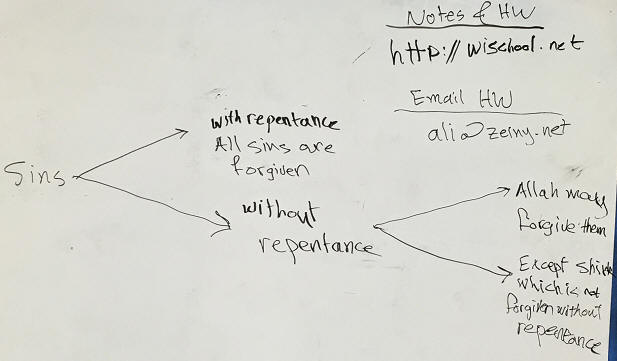 Notes & HW
http://wischool.net
Email HW
ali@zeiny.net
Sins
with repentance
All sins are
forgiven
without
repentance
Allah may
forgive them
Except shirk
which is not
forgiven without
repentance